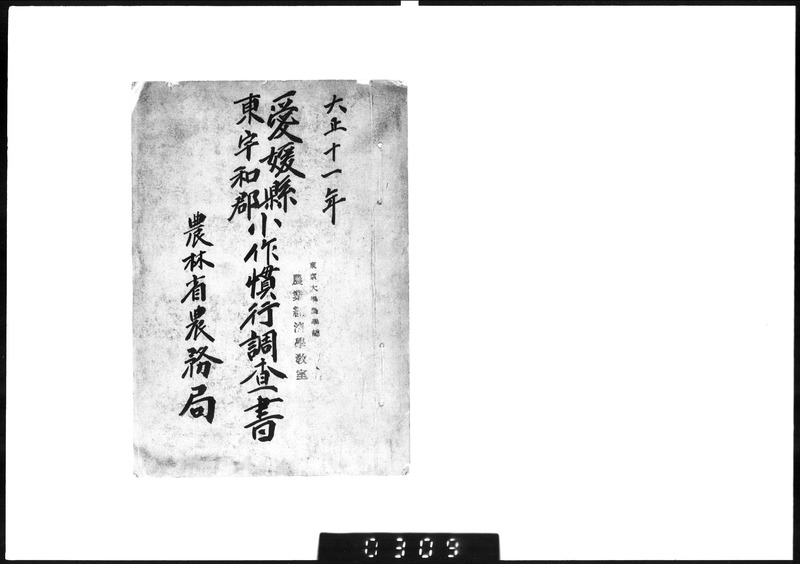 大正十一年
愛媛縣
東宇和郡
小作慣行調査書
農林省農務局
東京大學農學部
農業經濟學教室
0309